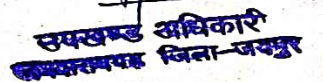 उपखण्ड अधिकारी
जिला-जयपुर